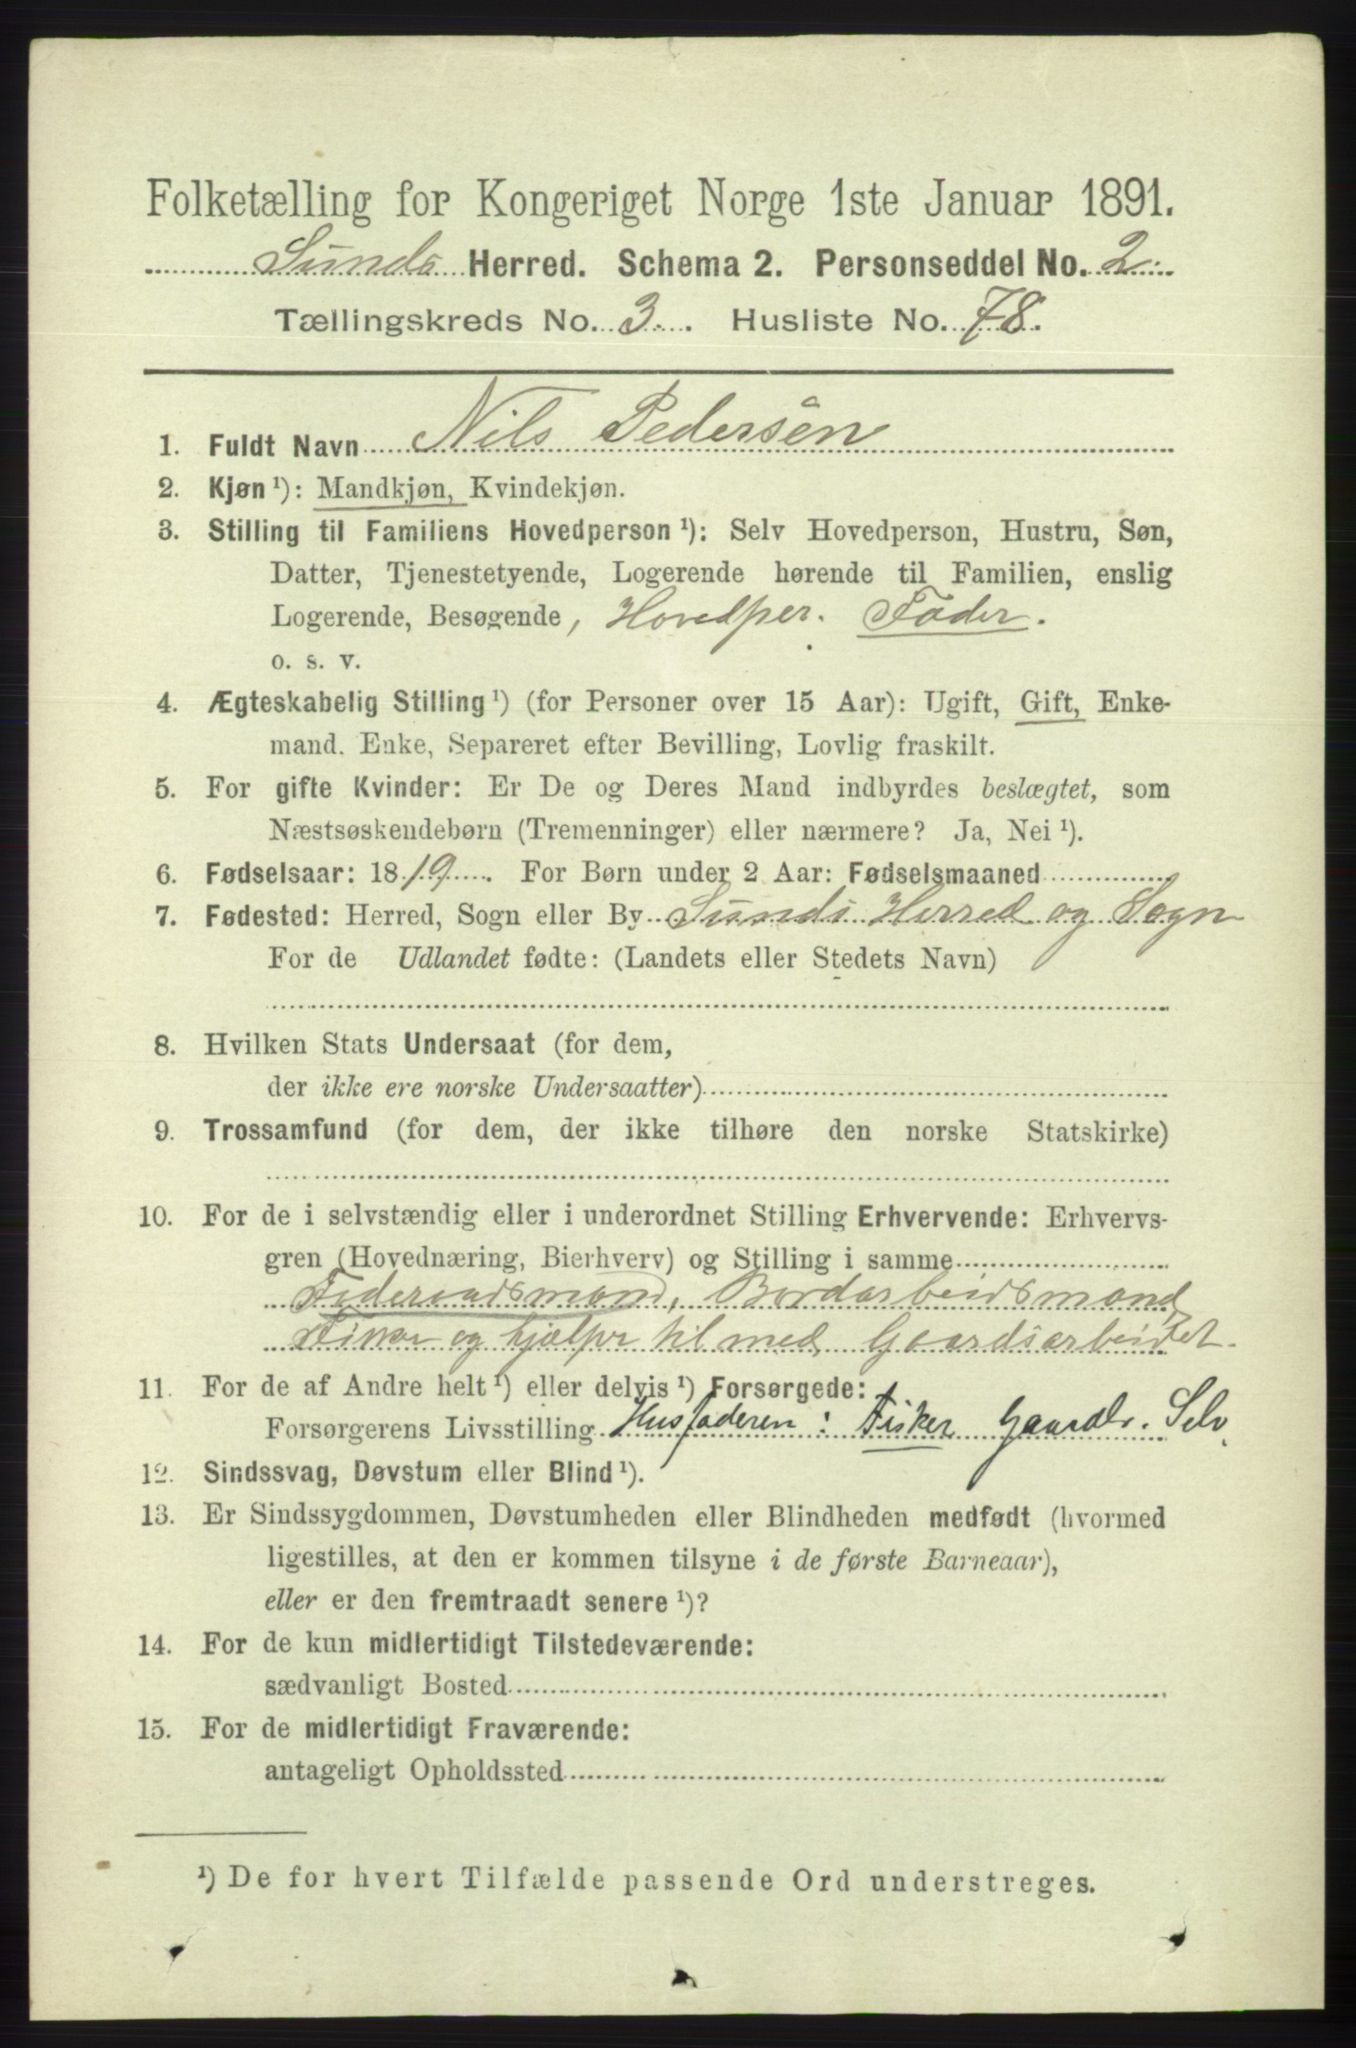 Folketælling for Kongeriget Norge 1ste Januar 1891.
Sunds Herred. Schema 2. Personseddel No. 2.
Tællingskreds No. 3. Husliste No. 78.
1. Fuldt Navn Nils Pedersen
2. Kjøn ¹): Mandkjøn, Kvindekjøn.
3. Stilling til Familiens Hovedperson ¹): Selv Hovedperson, Hustru, Søn,
Datter, Tjenestetyende, Logerende hørende til Familien, enslig
Logerende, Besøgende, Hovedper. Fader.
o. s. v.
4. Ægteskabelig Stilling ¹) (for Personer over 15 Aar): Ugift, Gift, Enke-
mand. Enke, Separeret efter Bevilling, Lovlig fraskilt.
5. For gifte Kvinder: Er De og Deres Mand indbyrdes beslægtet, som
Næstsøskendebørn (Tremenninger) eller nærmere? Ja, Nei ¹).
6. Fødselsaar: 1819. For Børn under 2 Aar: Fødselsmaaned
7. Fødested: Herred, Sogn eller By Sunds Herred og Sogn
For de Udlandet fødte: (Landets eller Stedets Navn)
8. Hvilken Stats Undersaat (for dem,
der ikke ere norske Undersaatter)
9. Trossamfund (for dem, der ikke tilhøre den norske Statskirke)
10. For de i selvstændig eller i underordnet Stilling Erhvervende: Erhvervs-
gren (Hovednæring, Bierhverv) og Stilling i samme
Føderaadsmand, Bordarbeidsmand,
og hjælper til med Gaardsarbeidet.
11. For de af Andre helt ¹) eller delvis ¹) Forsørgede:
Forsørgerens Livsstilling Husfaderen: Fisker Gaardbr. Selv
12. Sindssvag, Døvstum eller Blind ¹).
13. Er Sindssygdommen, Døvstumheden eller Blindheden medfødt (hvormed
ligestilles, at den er kommen tilsyne i de første Barneaar),
eller er den fremtraadt senere ¹)?
14. For de kun midlertidigt Tilstedeværende:
sædvanligt Bosted
15. For de midlertidigt Fraværende:
antageligt Opholdssted
¹) De for hvert Tilfælde passende Ord understreges.